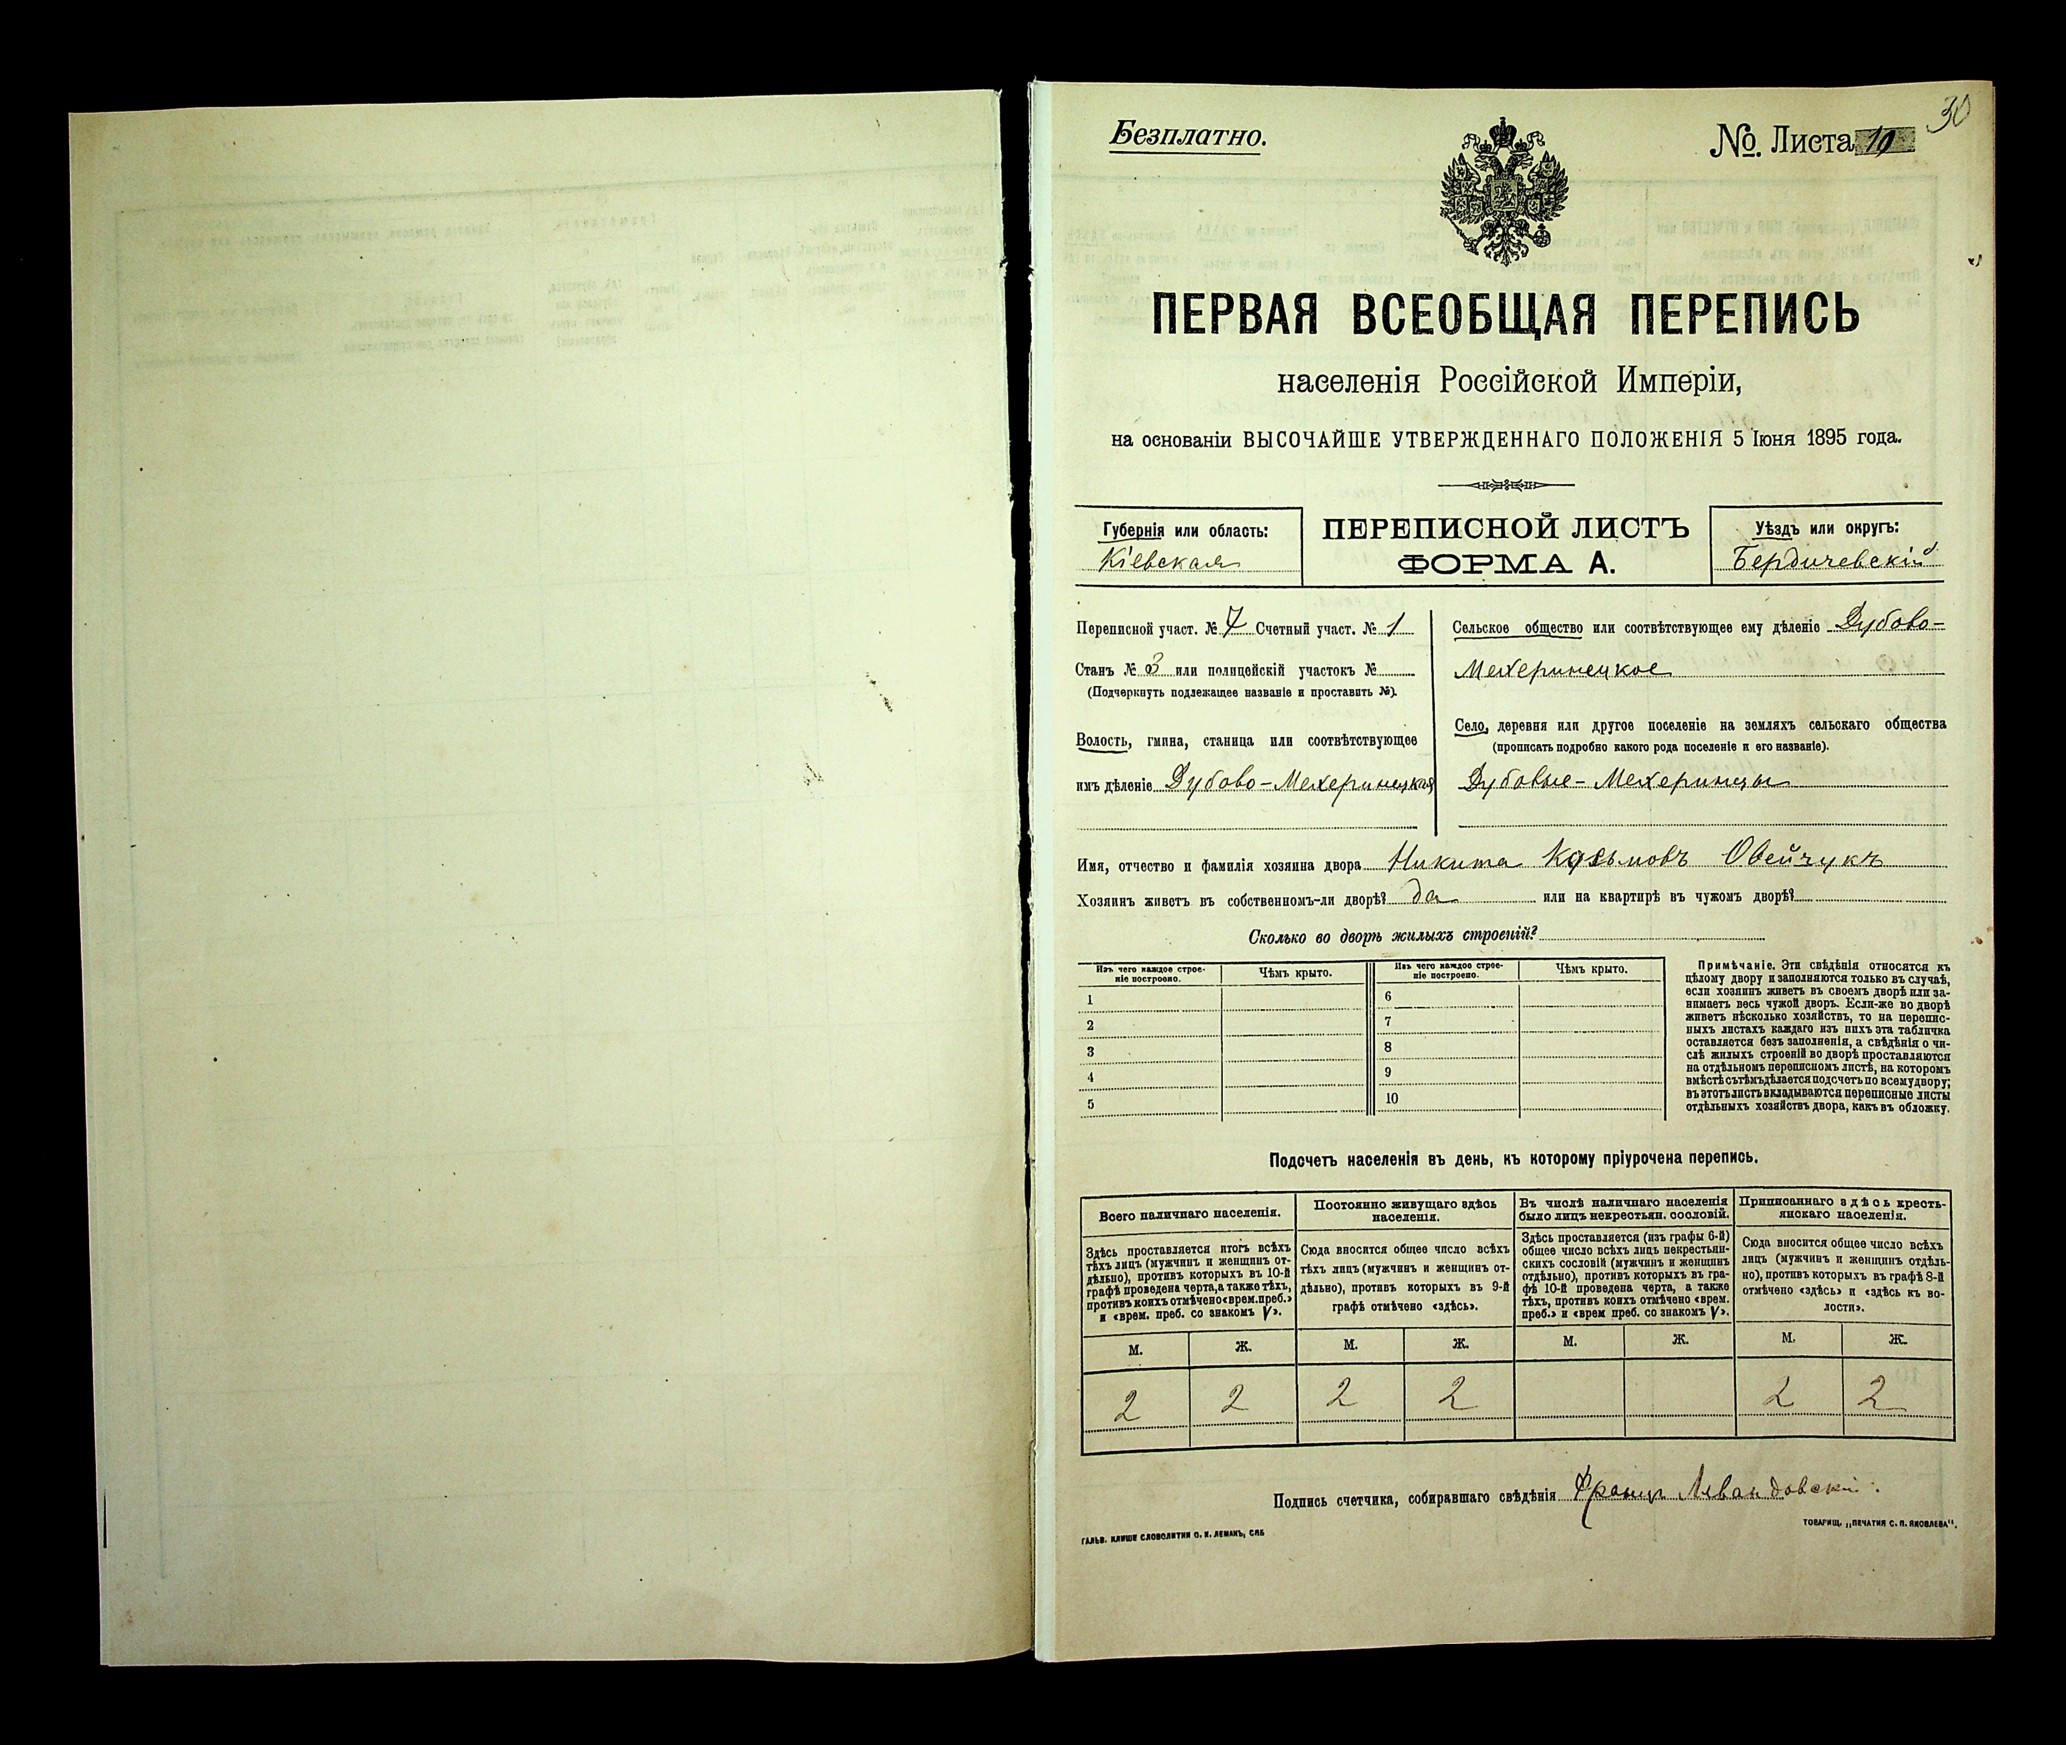 30
Безплатно.
№. Листа 19
ПЕРВАЯ ВСЕОБЩАЯ ПЕРЕПИСЬ
населенія Россійской Имперіи,
на основаніи ВЫСОЧАЙШЕ УТВЕРЖДЕННАГО ПОЛОЖЕНІЯ 5 Іюня 1895 года.
Губернія или область:
Кіевская
ПЕРЕПИСНОЙ ЛИСТЪ
ФОРМА А.
Уѣздъ или округъ:
Бердичевскій
Переписной участ. № 7 Счетный участ. № 1
Станъ № 3 или полицейскій участокъ №
(Подчеркнуть подлежащее названіе и проставить №).
Волость, гмина, станица или соотвѣтствующее
имъ дѣленіе Дубово-Мехеринецкая
Сельское общество или соотвѣтствующее ему дѣленіе Дубово-
Мехеринецкое
Село, деревня или другое поселеніе на земляхъ сельскаго общества
(прописать подробно какого рода поселеніе и его названіе).
Дубовые-Мехеринцы
Имя, отчество и фамилія хозяина двора Никита Козьмовъ Овейчукъ
Хозяинъ живетъ въ собственномъ-ли дворѣ? да или на квартирѣ въ чужомъ дворѣ?
Сколько во дворѣ жилыхъ строеній?
Изъ чего каждое строе-
ніе построено.
Чѣмъ крыто.
Изъ чего каждое строе-
ніе построено.
Чѣмъ крыто.
1
2
3
4
5
6
7
8
9
10
Примѣчаніе. Эти свѣдѣнія относятся къ
цѣлому двору и заполняются только въ случаѣ,
если хозяинъ живетъ въ своемъ дворѣ или за-
нимаетъ весь чужой дворъ. Если-же во дворѣ
живетъ нѣсколько хозяйствъ, то на перепис-
ныхъ листахъ каждаго изъ нихъ эта табличка
оставляется безъ заполненія, а свѣдѣнія о чи-
слѣ жилыхъ строеній во дворѣ проставляются
на отдѣльномъ переписномъ листѣ, на которомъ
вмѣстѣ съ тѣмъ дѣлается подсчетъ по всему двору;
въ этотъ листъ вкладываются переписные листы
отдѣльныхъ хозяйствъ двора, какъ въ обложку.
Подсчетъ населенія въ день, къ которому пріурочена перепись.
Всего наличнаго населенія.
Здѣсь проставляется итогъ всѣхъ
тѣхъ лицъ (мужчинъ и женщинъ от-
дѣльно), противъ которыхъ въ 10-й
графѣ проведена черта, а также тѣхъ,
противъ коихъ отмѣчено «врем. преб.»
и «врем. преб. со знакомъ V».
Постоянно живущаго здѣсь
населенія.
Сюда вносится общее число всѣхъ
тѣхъ лицъ (мужчинъ и женщинъ от-
дѣльно), противъ которыхъ въ 9-й
графѣ отмѣчено «здѣсь».
Въ числѣ наличнаго населенія
было лицъ некрестьян. сословій.
Здѣсь проставляется (изъ графы 6-й)
общее число всѣхъ лицъ некрестьян-
скихъ сословій (мужчинъ и женщинъ
отдѣльно), противъ которыхъ въ гра-
фѣ 10-й проведена черта, а также
тѣхъ, противъ коихъ отмѣчено «врем.
преб.» и «врем преб. со знакомъ V».
Приписаннаго здѣсь кресть-
янскаго населенія.
Сюда вносится общее число всѣхъ
лицъ (мужчинъ и женщинъ отдѣль-
но), противъ которыхъ въ графѣ 8-й
отмѣчено «здѣсь» и «здѣсь къ во-
лости».
М. Ж. М. Ж. М. Ж. М. Ж.
2 2 2 2 2 2
Подпись счетчика, собиравшаго свѣдѣнія Францъ Левандовскій
ГАЛЬВ. КЛИШЕ СЛОВОЛИТНИ О. И. ЛЕМАНЪ, СПБ
ТОВАРИЩ. „ПЕЧАТНЯ С. П. ЯКОВЛЕВА“.